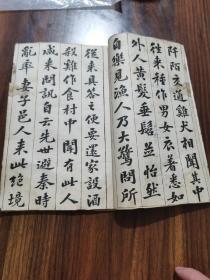 阡陌交通雞犬相聞其中
往來種作男女衣著悉如
外人黃髮垂髫並怡然
自樂見漁人乃大驚問所
從来具答之便要還家設酒
殺雞作食村中聞有此人
咸来問訊自云先世避秦時
亂率妻子邑人来此絕境